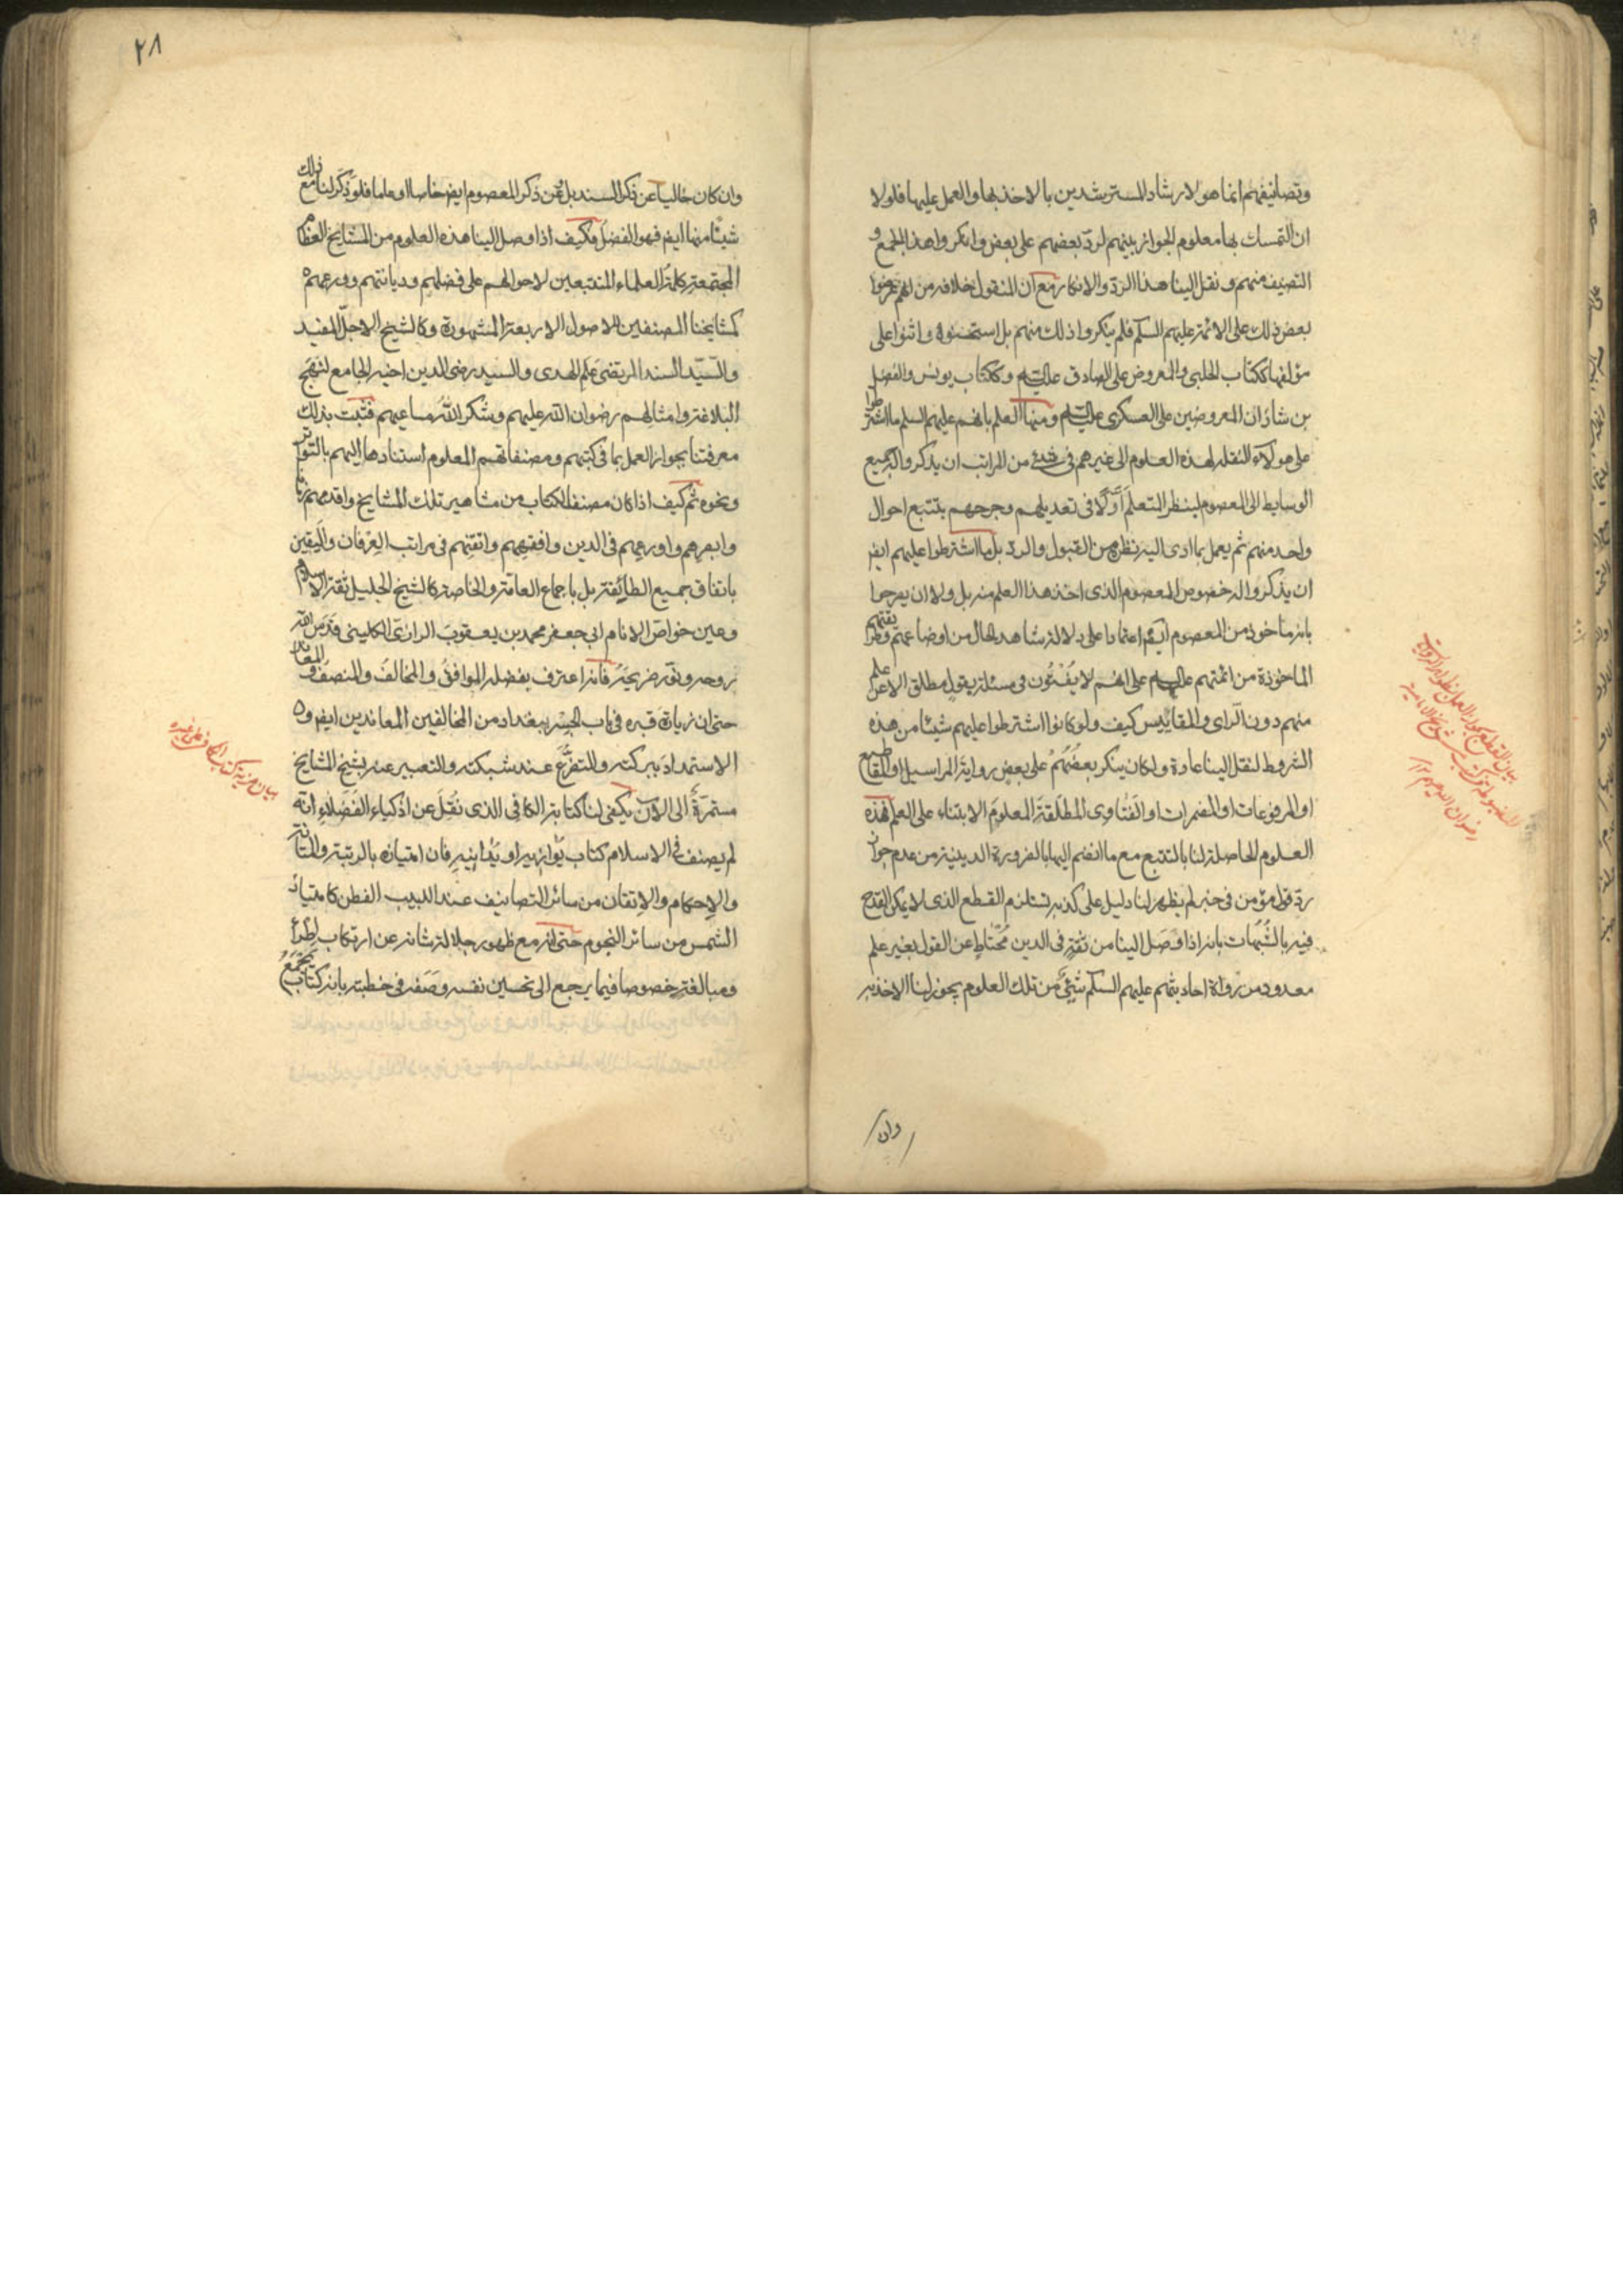 وتصانيفهم انما هو لارشاد المسترشدين بالاخذ بها والعمل عليها فلولا
ان التمسك بها معلوم الجواز بينهم لردّ بعضهم على بعض وانكروا هذا الجمع و
التصنيف منهم ونقل الينا هذا الردّ والانكار مع ان المنقول خلافه من انهم عرضوا
بعض ذلك على الائمة عليهم السلم فلم ينكروا ذلك منهم بل استحسنوه واثنوا على
مؤلفها ككتاب الحلبي المعروض على الصادق عليه السلم وككتاب يونس والفضل
بن شاذان المعروضين على العسكرى عليه السلم ومنها العلم بانهم عليهم السلم ما اشترطوا
على هولآء النقلة لهذه العلوم الى غيرهم فى شئ من المراتب ان يذكروا جميع
الوسايط الى المعصوم لينظر المتعلم اوّلا فى تعديلهم وجرحهم بتتبع احوال
واحد منهم ثم يعمل بما ادى اليه نظره من القبول والردّ بل ما اشترطوا عليهم ايض
ان يذكروا له خصوص المعصوم الذى اخذ هذا العلم منه بل ولا ان يصرحوا
بانه ماخوذ من المعصوم ايض اعتمادا على دلالة شاهد الحال من اوضاعهم وطريقتهم
الماخوذة من ائمتهم عليهم السلم على انهم لا يُفْتُون فى مسئلة بقول مطلق الا عن علم
منهم دون الراى والمقاييس كيف ولو كانوا اشترطوا عليهم شيئا من هذه
الشروط لنقل الينا عادة ولكان ينكر بعضُهُمْ على بعض رواية المراسيل او المقاطيع
او المرفوعات او المضمرات او الفَتاوى المطلقة المعلوم الابتناء على العلم فهذه
العلوم الحاصلة لنا بالتتبع مع ما انضم اليها بالضرورة الدينية من عدم جواز
ردّ قول مؤمن فى خبر لم يظهر لنا دليل على كذبه تستلزم القطع الذى لا يمكن القدح
فيه بالشُبُهات بانه اذا وصَل الينا من ثقةٍ فى الدين مُحتاطٍ عن القول بغير علم
معدود من رواة احاديثهم عليهم السلم شئٌ من تلك العلوم يجوز لنا الاخذ به
وان
٢٨
وان كان خاليا عن ذكر السند بل عن ذكر المعصوم ايض خاصا او عاما فلو ذكر لنا مع ذلك
شيئا منها ايض فهو الفضل فكيف اذا وصل الينا هذه العلوم من المشايخ العظام
المجتمعة كلمةُ العلماء المتتبعين لاحوالهم على فضلهم وديانتهم وورعهم
كمشايخنا المصنفين للاصول الاربعة المشهورة وكالشيخ الاجلّ المفيد
والسّيد السند المرتضى عَلَم الهدى والسيد رضى الدين اخيه الجامع لنهج
البلاغة وامثالهم رضوان الله عليهم وشكر اللهُ مساعيهم فثبت بذلك
معرفتنا بجواز العمل بما فى كتبهم ومصنفاتهم المعلوم استنادها اليهم بالتواتر
ونحوه ثم كيف اذا كان مصنف الكتاب من مشاهير تلك المشايخ واقدمهم زمانا
وابصرهم واورعهم فى الدين وافقههم واتقنهم فى مراتب العِرْفان واليقين
باتفاق جميع الطائفة بل باجماع العامة والخاصة كالشيخ الجليل ثقة الاسلام
وعين خواصّ الانام ابى جعفر محمد بن يعقوب الرازىّ الكلينى قدّس الله
روحه ونوّر ضريحَهُ فانه اعترف بفضله الموافق والمخالف والمنصف و المعاند
حتى ان زيارة قبره فى باب الجِسْر ببغداد من المخالفين المعاندين ايض و
الاستمداد ببركته والتضرّع عند شبكته والتعبير عنه بشيخ المشايخ
مستمرّة الى الآن يكفى لنا كتابة الكافى الذى نُقِلَ عن اذكياء الفُضَلاءِ انّه
لم يصنف فى الاسلام كتاب يُوازيه او يُدانيه فان امتيازه بالرتبة والمتانة
والاِحكام والاِتقان من سائر التصانيف عند اللبيب الفطن كامتياز
الشمس من سائر النجوم حتى انه مع ظهور جلالة شانه عن ارتكاب اطراء
ومبالغة خصوصا فيما يرجع الى تحسين نفسه وصَفه فى خطبته بانه كتاب يَجْمَعُ
بيان مزية كتاب الكافى على غيره